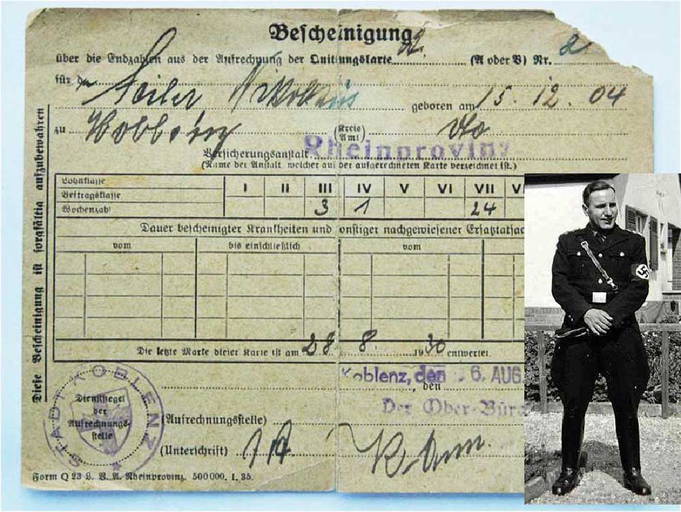 Bescheinigung
über die Endzahlen aus der Aufrechnung der Quittungskarte (A oder B) Nr. 2
für d Seiler Nikolaus geboren am 15. 12. 04
zu (Kreis Amt) dto
Versicherungsanstalt Rheinprovinz
(Name der Anstalt, welcher auf der aufgerechneten Karte verzeichnet ist.)
Lohnklasse
Beitragsklasse I II III IV V VI VII V
Wochenzahl 3 1 24
Dauer bescheinigter Krankheiten und sonstiger nachgewiesener Ersatztatsac
vom bis einschließlich vom
Die letzte Marke dieser Karte ist am 28. 8. 1930 entwertet
Koblenz, den 6. AUG. , den
Der Ober-Bürg
(Aufrechnungsstelle)
(Unterschrift)
Form Q 23 L. V. A. Rheinprovinz. 500000. 1. 35.
Diese Bescheinigung ist sorgfältig aufzubewahren
STADT KOBLENZ
Dienstsiegel
der
Aufrechnungs-
stelle